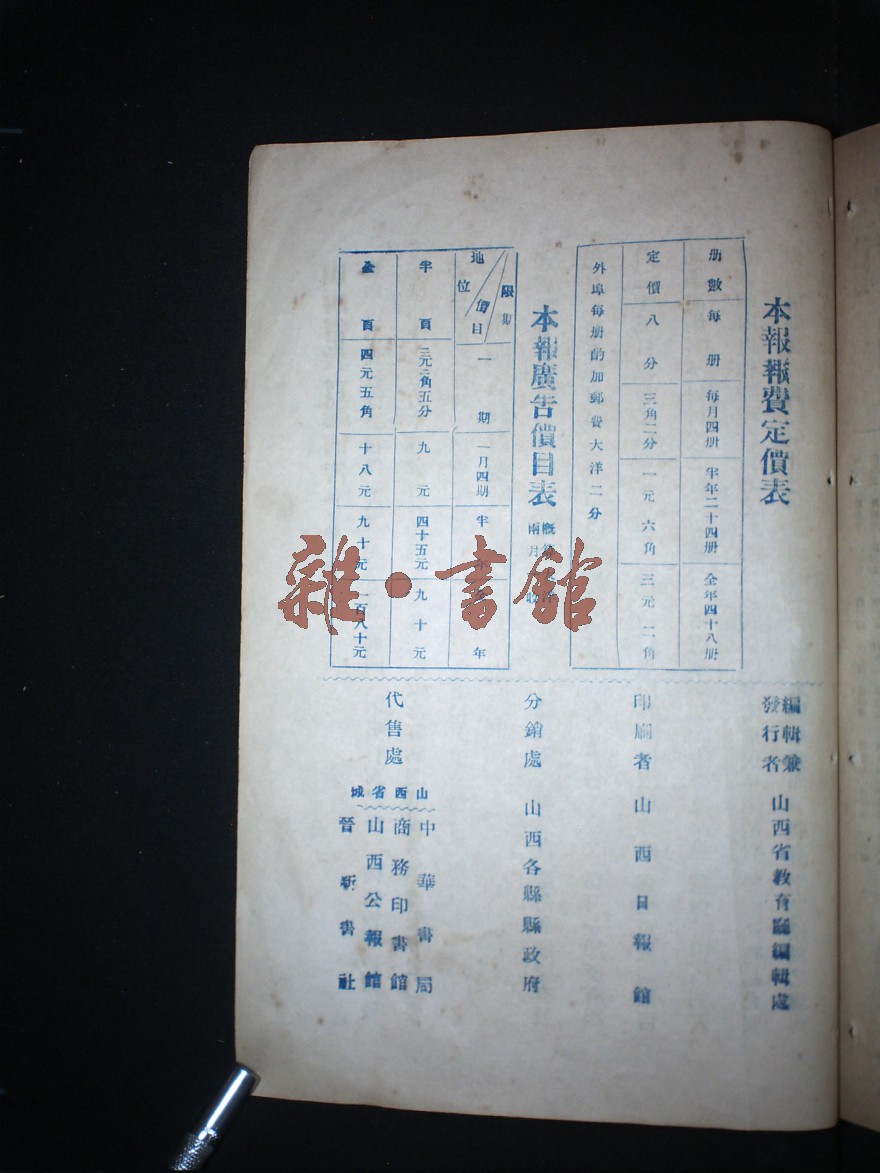 本報報費定價表
册數 每册 每月四册 半年二十四册 全年四十八册
定價 八分 三角二分 一元六角 三元二角
外埠每册酌加郵費大洋二分
本報廣告價目表
兩月
限期 價目 地位 一期 一月四期 半年 年
半頁 三元二角五分 九元 四十五元 九十元
全頁 四元五角 十八元 九十元 一百八十元
編輯兼發行者 山西省教育廳編輯處
印刷者 山西日報館
分銷處 山西各縣縣政府
代售處
山西省城
中華書局
商務印書館
山西公報館
晉新書社
雜·書館